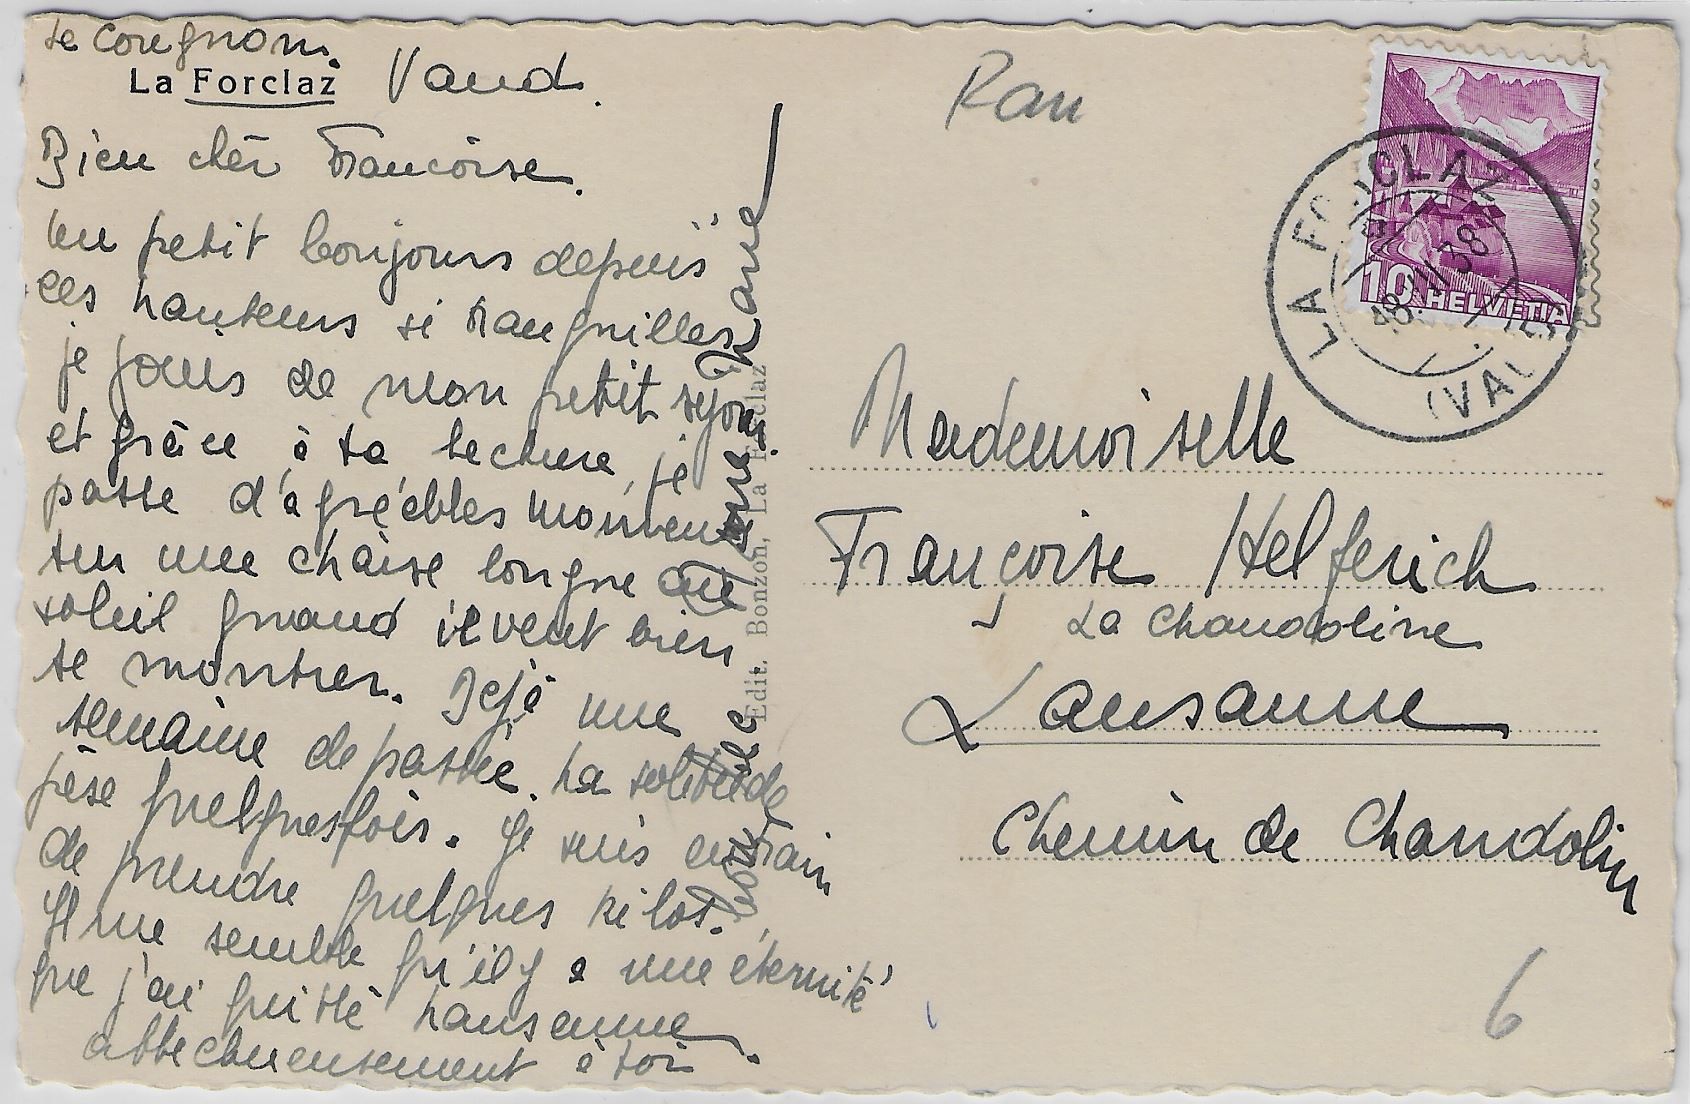 La Forclaz Vaud.
Bien chèr Françoise.
un petit bonjours depuis
ces hauteurs si tranquilles
je jouis de mon petit séjour
et grâce à ta lecture, je
passe d'agréables moments
sur une chaise longue au
soleil quand il veut bien
se montrer. Déjà une
semaine de passée. La solitude
pèse quelquesfois. Je suis entrain
de prendre quelques kilos.
Il me semble qu'il y a une éternité
que j'ai quitté Lausanne.
affectueusement à toi
Edit. Bonzon, La Forclaz
Rau
10 HELVETIA
LA FORCLAZ
(VAUD)
Mademoiselle
Françoise Helferich
La Chandoline
Lausanne
Chemin de Chandolin
6